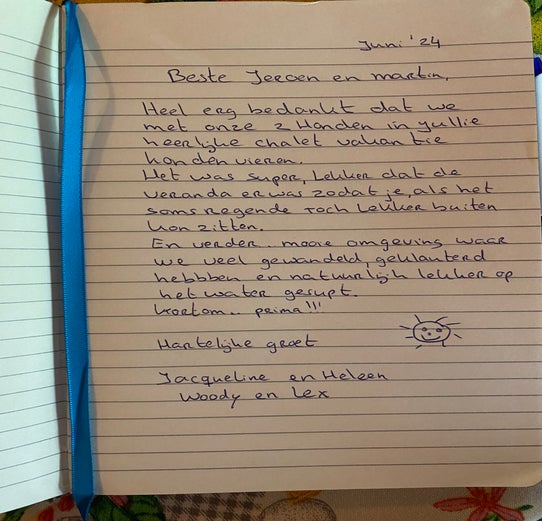 Juni '24
Beste Jeroen en martin,
Heel erg bedankt dat we
met onze 2 Honden in jullie
heerlijke chalet vakantie
konden vieren.
Het was super, Lekker dat de
veranda er was zodat je, als het
soms regende toch Lekker buiten
kon zitten.
En verder.. mooie omgeving waar
we veel gewandeld, geklauterd
hebbben en natuurlijk lekker op
het water gesupt.
kortom.. prima!!!
Hartelijke groet
Jacqueline en Heleen
Woody en Lex